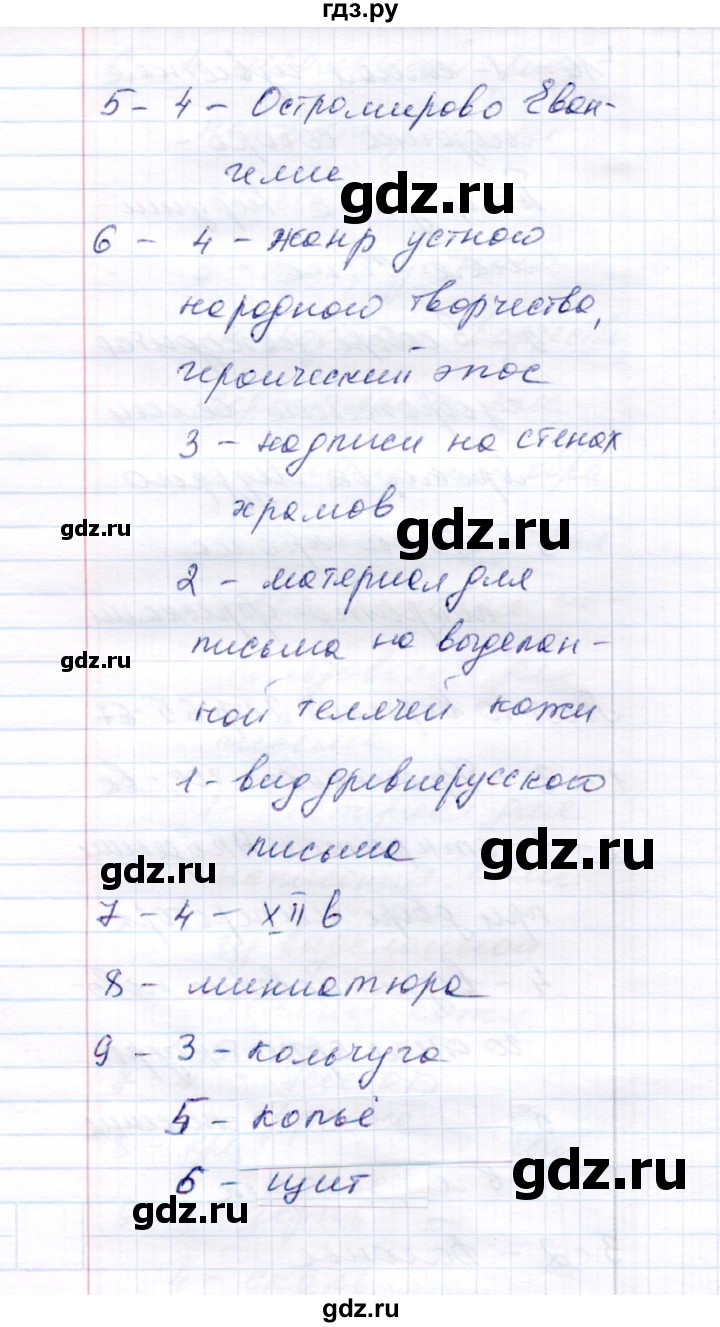 гдз.ру
5 - 4 - Остромирово Еван-
гелие
gdz.ru
6 - 4 - жанр устного
народного творчества,
героический эпос
3 - надписи на стенах
храмов
gdz.ru
gdz.ru
2 - материал для
письма на выделан-
gdz.ru
ной телячей кожи
1 - вид древнерусского
письма
gdz.ru
gdz.ru
7 - 4 - XII в
8 - миниатюра
9 - 3 - кольчуга
5 - копьё
gdz.ru
6 - щит
gdz.ru
gdz.ru